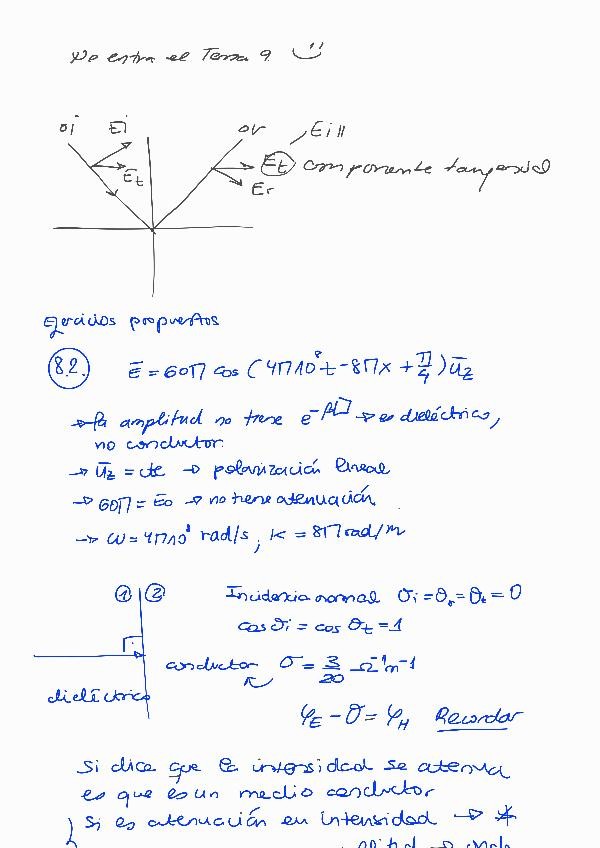 No entra el Tema 9 :)
θi Ei θr Ei∥
Et Et componente tangencial
Er
Ejercicios propuestos
8.2. Ē = 60Π cos (4Π10⁸t - 8Πx + Π/4) ūz
→ la amplitud no tiene e^-β[] → es dieléctrico,
no conductor.
→ ūz = cte → polarización lineal
→ 60Π = Eo → no tiene atenuación
→ ω = 4Π10⁸ rad/s, K = 8Π rad/m
① ② Incidencia normal θi = θr = θt = 0
cos θi = cos θt = 1
conductor σ = 3/20 Ω⁻¹m⁻¹
dieléctrico
φE - θ = φH Recordar
Si dice que la intensidad se atenua
es que es un medio conductor
Si es atenuación en intensidad → *